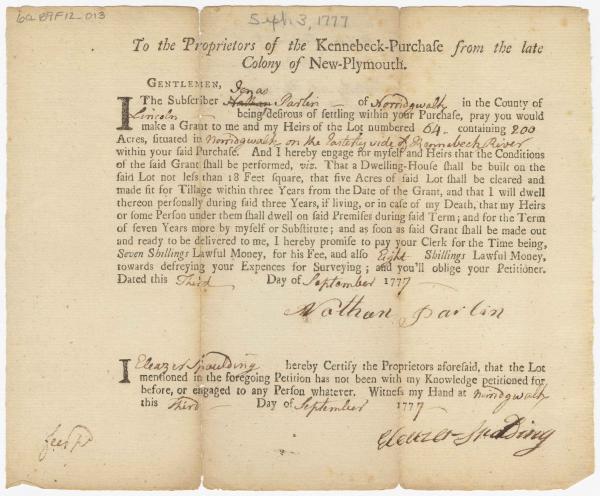 6a 89F12_013
Sept. 3, 1777
To the Proprietors of the Kennebeck-Purchaſe from the late
Colony of New-Plymouth.
GENTLEMEN,
Jonas
I The Subſcriber Nathan Parlin - of Norridgwalk in the County of
Lincoln being deſirous of ſettling within your Purchaſe, pray you would
make a Grant to me and my Heirs of the Lot numbered 64 - containing 200
Acres, ſituated in Norridgwalk on the Easterly side of Kennebeck River
within your ſaid Purchaſe. And I hereby engage for myſelf and Heirs that the Conditions
of the ſaid Grant ſhall be performed, viz. That a Dwelling-Houſe ſhall be built on the
ſaid Lot not leſs than 18 Feet ſquare, that five Acres of ſaid Lot ſhall be cleared and
made fit for Tillage within three Years from the Date of the Grant, and that I will dwell
thereon perſonally during ſaid three Years, if living, or in caſe of my Death, that my Heirs
or ſome Perſon under them ſhall dwell on ſaid Premiſes during ſaid Term; and for the Term
of ſeven Years more by myſelf or Subſtitute; and as ſoon as ſaid Grant ſhall be made out
and ready to be delivered to me, I hereby promiſe to pay your Clerk for the Time being,
Seven Shillings Lawful Money, for his Fee, and alſo Eight Shillings Lawful Money,
towards defreying your Expences for Surveying; and you'll oblige your Petitioner.
Dated this Third Day of September 1777
Nathan Parlin
I Eleazer Spaulding hereby Certify the Proprietors aforeſaid, that the Lot
mentioned in the foregoing Petition has not been with my Knowledge petitioned for
before, or engaged to any Perſon whatever. Witneſs my Hand at Norridgwalk
this Third Day of September 1777
fees pd
Eleazer Spalding